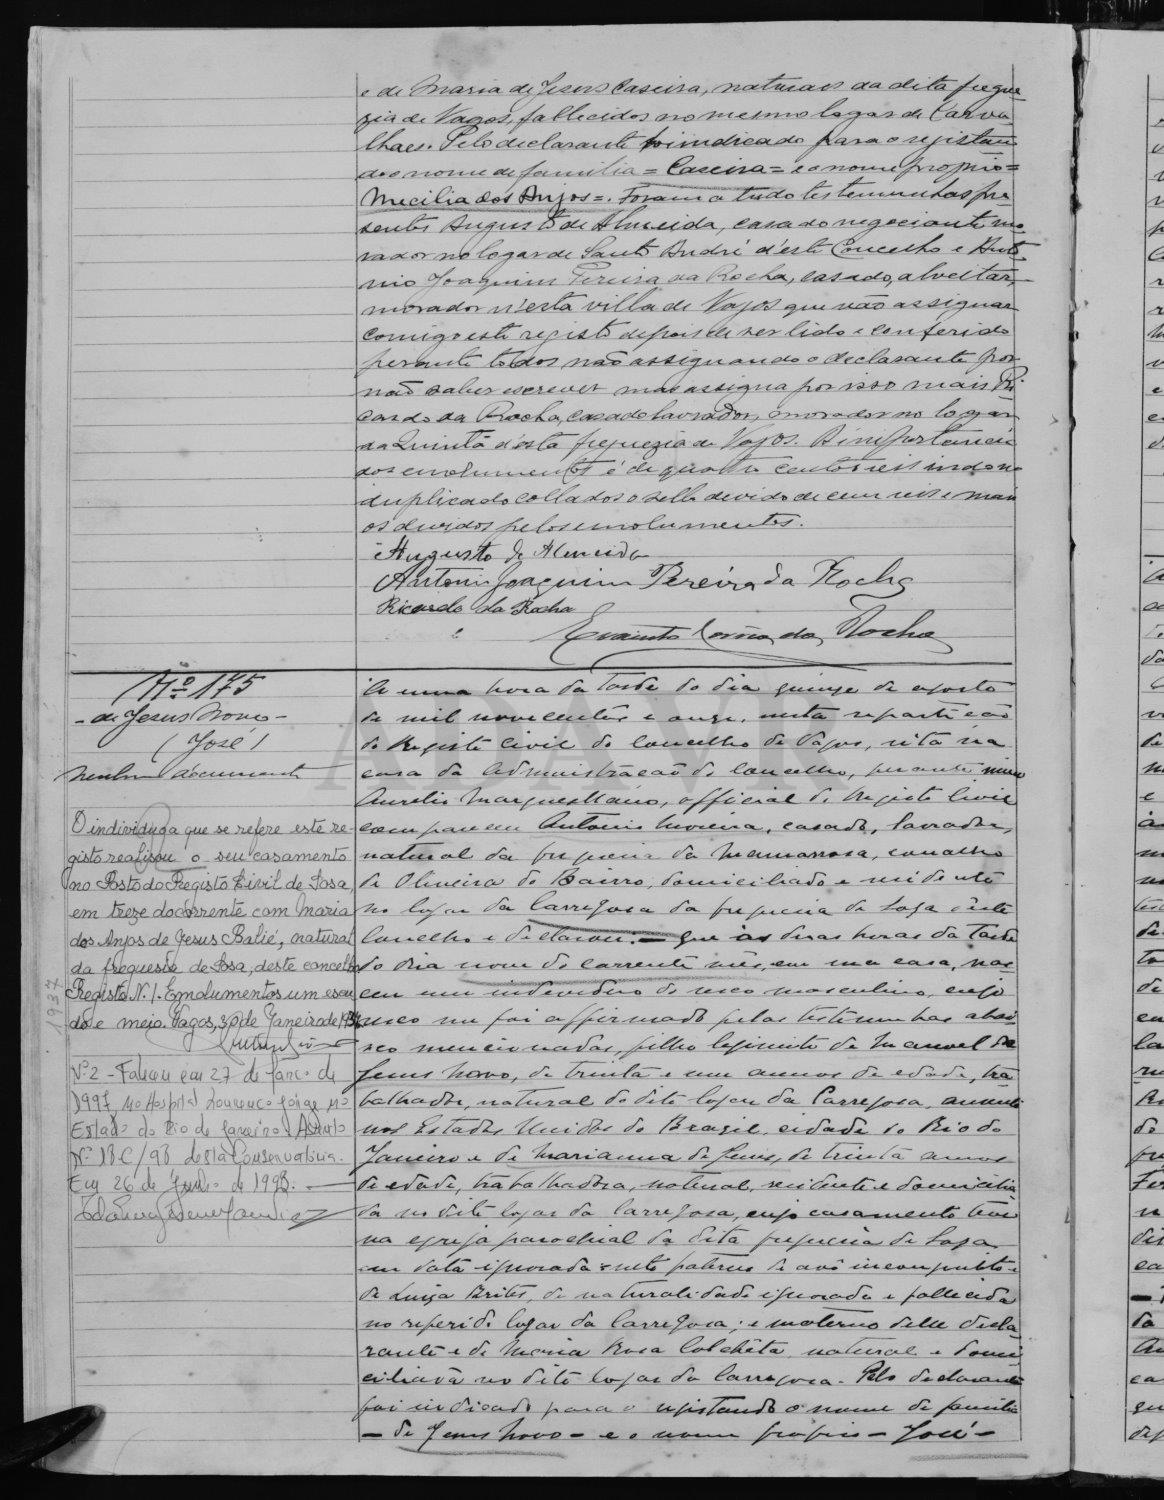 e de Maria de Jesus Caseira, naturaes da dita fregue
zia de Vagos, fallecidos no mesmo logar de Carva
lhaes. Pelo declarante foi indicado para o registan
do o nome de familia = Caseira = e o nome proprio =
Mecilia dos Anjos =. Foram a tudo testemunhas pre
sentes Augusto de Almeida, casado negociante mo
rador no logar de Santo André d'este Concelho e Anto
nio Joaquim Pereira da Rocha, casado, alveitar,
morador n'esta villa de Vagos que vão assignar
comigo este registo depois de ser lido e conferido
perante todos não assignando o declarante por
não saber escrever mas assigna por isso mais Ri
cardo da Rocha, casado lavrador, morador no logar
da Quintã d'esta freguezia de Vagos. A importancia
dos emolumentos é de quatro centos reis indo no
duplicado collados o sello devido de cem reis e mais
os devidos pelos emolumentos.
Augusto de Almeida
Antonio Joaquim Pereira da Rocha
Ricardo da Rocha
da Rocha
Nº 175
- de Jesus Novo -
(José)
Nenhum documento
O individuo a que se refere este re-
gisto realisou o seu casamento
no Posto do Registo Civil de Sosa,
em treze do corrente com Maria
dos Anjos de Jesus Balié, natural
da freguesia de Sosa, deste concelho
Registo N. 1. Emolumentos um escu
do e meio. Vagos, 30 de Janeiro de 1937
1937
Nº 2 - Faleceu em 27 de Março de
1997, no Hospital Lourenço Jorge no
Estado do Rio de Janeiro. Assento
Nº 18 C/98 desta Conservatória.
Em 26 de Junho de 1998.
A uma hora da tarde do dia quinze de agosto
de mil novecentos e onze, nesta repartição
do Registo Civil do Concelho de Vagos, sita na
casa da Administração do Concelho, perante mim
Aurelio Marques Mano, official do Registo Civil
compareceu Antonio Moreira, casado, lavrador,
natural da freguesia da Mamarrosa, concelho
de Oliveira do Bairro, domiciliado e residente
no logar da Carregosa da freguesia de Soza deste
Concelho e declarou: - que ás duas horas da tarde
do dia nove do corrente mês, em sua casa, nas
ceu um individuo do sexo masculino, cujo
sexo me foi affirmado pelas testemunhas abai
xo mencionadas, filho legitimo de Manoel de
Jesus Novo, de trinta e um annos de edade, tra
balhador, natural do dito logar da Carregosa, ausente
nos Estados Unidos do Brazil, cidade do Rio de
Janeiro e de Marianna de Jesus, de trinta annos
de edade, trabalhadora, natural, residente e domicilia
da no dito logar da Carregosa, cujo casamento teve
na egreja parochial da dita freguesia de Soza
em data ignorada: neto paterno de avô incognito e
de Luiza Brites, de naturalidade ignorada e fallecida
no referido logar da Carregosa; e materno delle decla
rante e de Maria Rosa Colchêta, natural e domi
ciliada no dito logar da Carregosa. Pelo declarante
foi indicado para o registando o nome de familia
- de Jesus Novo - e o nome proprio - José -
ADAVR